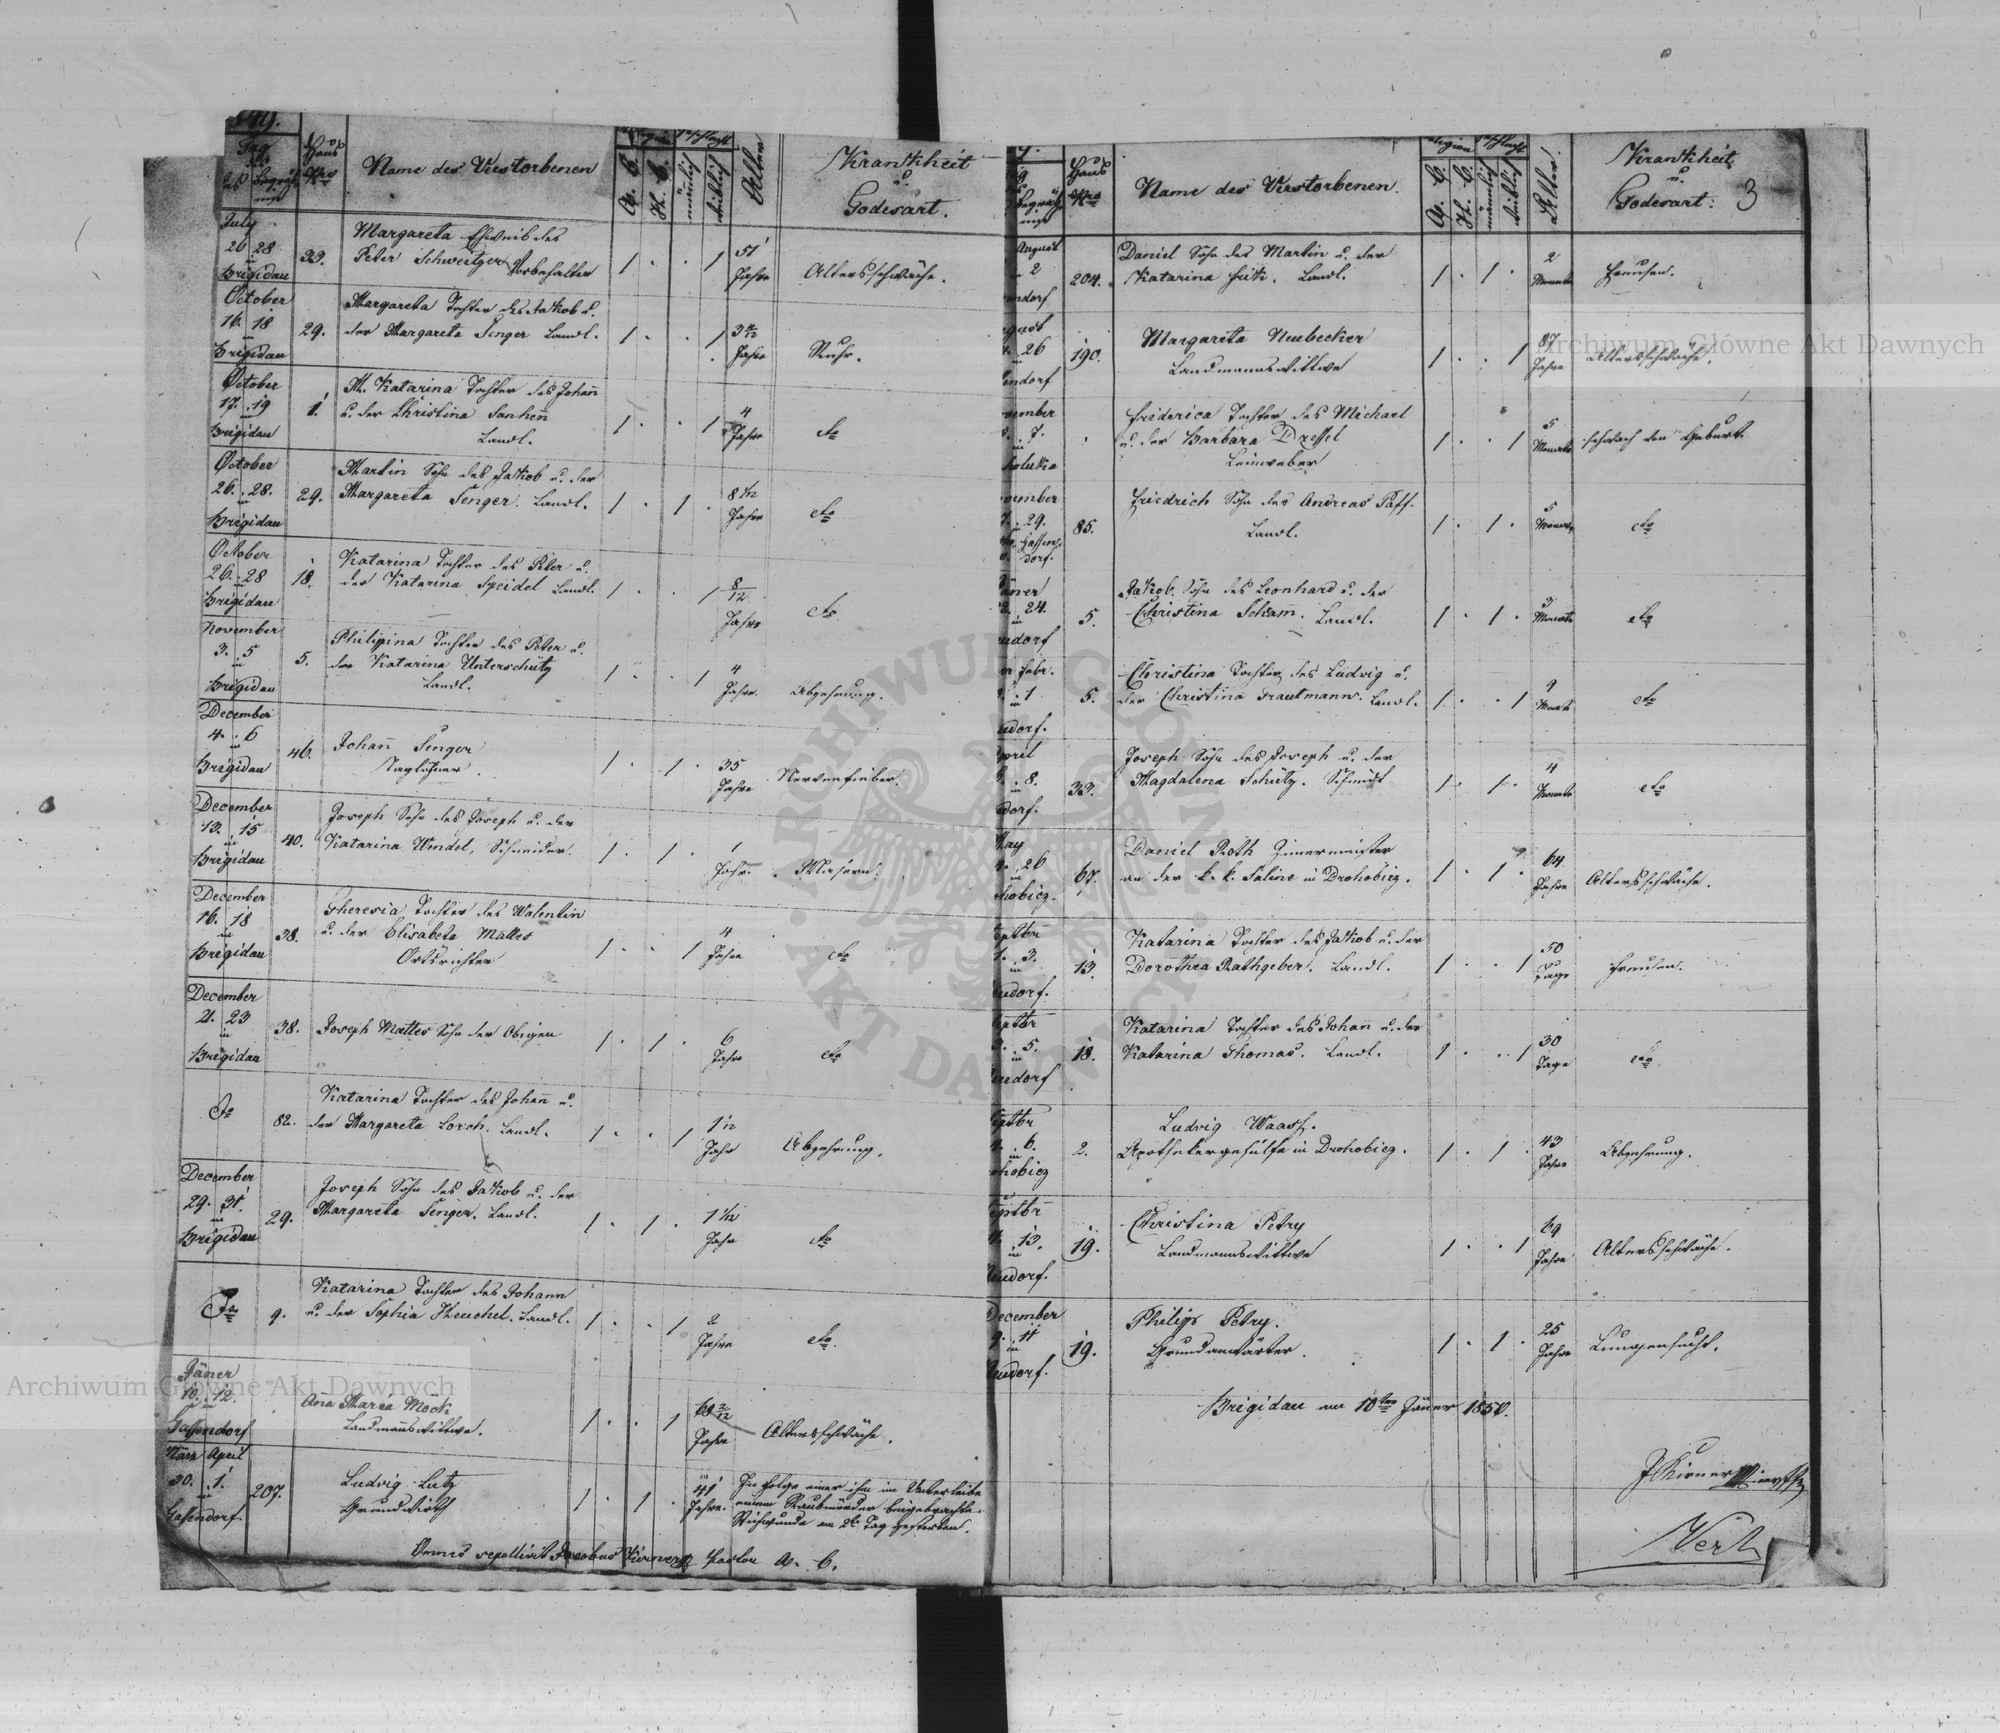 1849.
Tag
des
Begräb
niss
Haus
Nro
Name des Verstorbenen
Religion
A. C.
H. C.
Geschlecht
männlich
weiblich
Alter
Krankheit
u.
Todesart.
July
26 28
in
Brigidau
33.
Margareta Eheweib des
Peter Schweitzer Vorbehalter
1 . . 1
51
Jahre
Altersschwäche.
October
16. 18
in
Brigidau
29.
Margareta Tochter des Jakob u.
der Margareta Senger Landl.
1 . . 1
3
Jahre
Ruhr.
October
17. 19
in
Brigidau
1.
M. Katarina Tochter des Johañ
u. der Christina
Landl.
1 . . 1
4
Jahre
dto
October
26. 28.
in
Brigidau
29.
Martin Sohn des Jakob u. der
Margareta Senger. Landl.
1 . 1 .
8
Jahre
dto
October
26. 28
in
Brigidau
18.
Katarina Tochter des Peter u.
der Katarina Speidel Landl.
1 . . 1
8/12
Jahre
dto
November
3. 5
in
Brigidau
5.
Philipina Tochter des Peter u.
der Katarina Unterschütz
Landl.
1 . . 1
4
Jahre
Abzehrung.
December
4. 6
in
Brigidau
46.
Johañ Senger
Taglöhner.
1 . 1 .
35
Jahre
Nervenfieber.
December
13. 15
in
Brigidau
40.
Joseph Sohn des Joseph u. der
Katarina Wendel, Schneider.
1 . 1 .
1
Jahr.
Masern.
December
16. 18
in
Brigidau
38.
Theresia Tochter des Walentin
u. der Elisabeta Mattes
Ortsrichter
1 . . 1
4
Jahre
dto
December
21. 23
in
Brigidau
38.
Joseph Mattes Sohn der Obigen
1 . 1 .
6
Jahre
dto
dto
82.
Katarina Tochter des Johañ u.
der Margareta Lorch. Landl.
1 . . 1
Jahr
Abzehrung.
December
29. 31.
in
Brigidau
29.
Joseph Sohn des Jakob u. der
Margareta Senger. Landl.
1 . 1 .
1
Jahr
dto
dto
9.
Katarina Tochter des Johann
u. der Sophia Landl.
1 . . 1
2
Jahre
dto.
Jäner
10. 12.
in
Gassendorf
Aña Maria Möck
Landmañswittwe.
1 . . 1
Jahre
Altersschwäche.
März April
30. 1.
in
Gassendorf.
207.
Ludvig Lutz
Grundwirth
1 . 1 .
41
Jahre.
In Folge einer ihm im Unterleibe
einem Raubmörder beigebrachten
Stichwunde am 2t Tag gestorben.
Omnes sepelivit Jacobus Kirner Pastor A. C.
Haus
Nro
Name des Verstorbenen.
A. C.
H. C.
männlich
weiblich
Alter.
Krankheit
u.
Todesart:
3
August
2
204.
Daniel Sohn des Martin u. der
Katarina Landl.
1 . 1 .
2
Monate
Fraisen.
26
190.
Margareta Neubecker
Landmannswittwe
1 . . 1
87
Jahre
Altersschwäche.
7.
Friderica Tochter des Michael
u. der Barbara Dressel
Leinweber
1 . . 1
5
Monate
schwach von Geburt.
29.
85.
Friedrich Sohn des Andreas Paff.
Landl.
1 . 1 .
5
Monate
dto
24.
5.
Jakob Sohn des Leonhard u. der
Christina Landl.
1 . 1 .
3
Monate
dto
1
5.
Christina Tochter des Ludvig u.
der Christina Trautmann. Landl.
1 . . 1
9
Monate
dto
8.
33.
Joseph Sohn des Joseph u. der
Magdalena Schütz. Schmidt
1 . 1 .
4
Monate
dto
26
67.
Daniel Roth Zimermeister
an der k. k. Saline in Drohobicz.
1 . 1 .
64
Jahre
Altersschwäche.
3.
13.
Katarina Tochter des Jakob u. der
Dorothea Rathgeber. Landl.
1 . . 1
50
Tage
Fraisen.
5.
18.
Katarina Tochter des Johañ u. der
Katarina Thomas. Landl.
1 . . 1
30
Tage
dto
6.
2.
Ludvig Waass.
Apothekergehülfe in Drohobicz.
1 . 1 .
43
Jahre
Abzehrung.
13.
19.
Christina Petry
Landmannswittwe
1 . . 1
69
Jahre
Altersschwäche.
December
9. 11
in
19.
Philipp Petry.
Grundanwärter.
1 . 1 .
25
Jahre
Lungensucht.
Brigidau am 10ten Jäner 1850.
J Kirner
Archiwum Główne Akt Dawnych
Archiwum Główne Akt Dawnych
ARCHIWUM GŁÓWNE AKT DAWNYCH